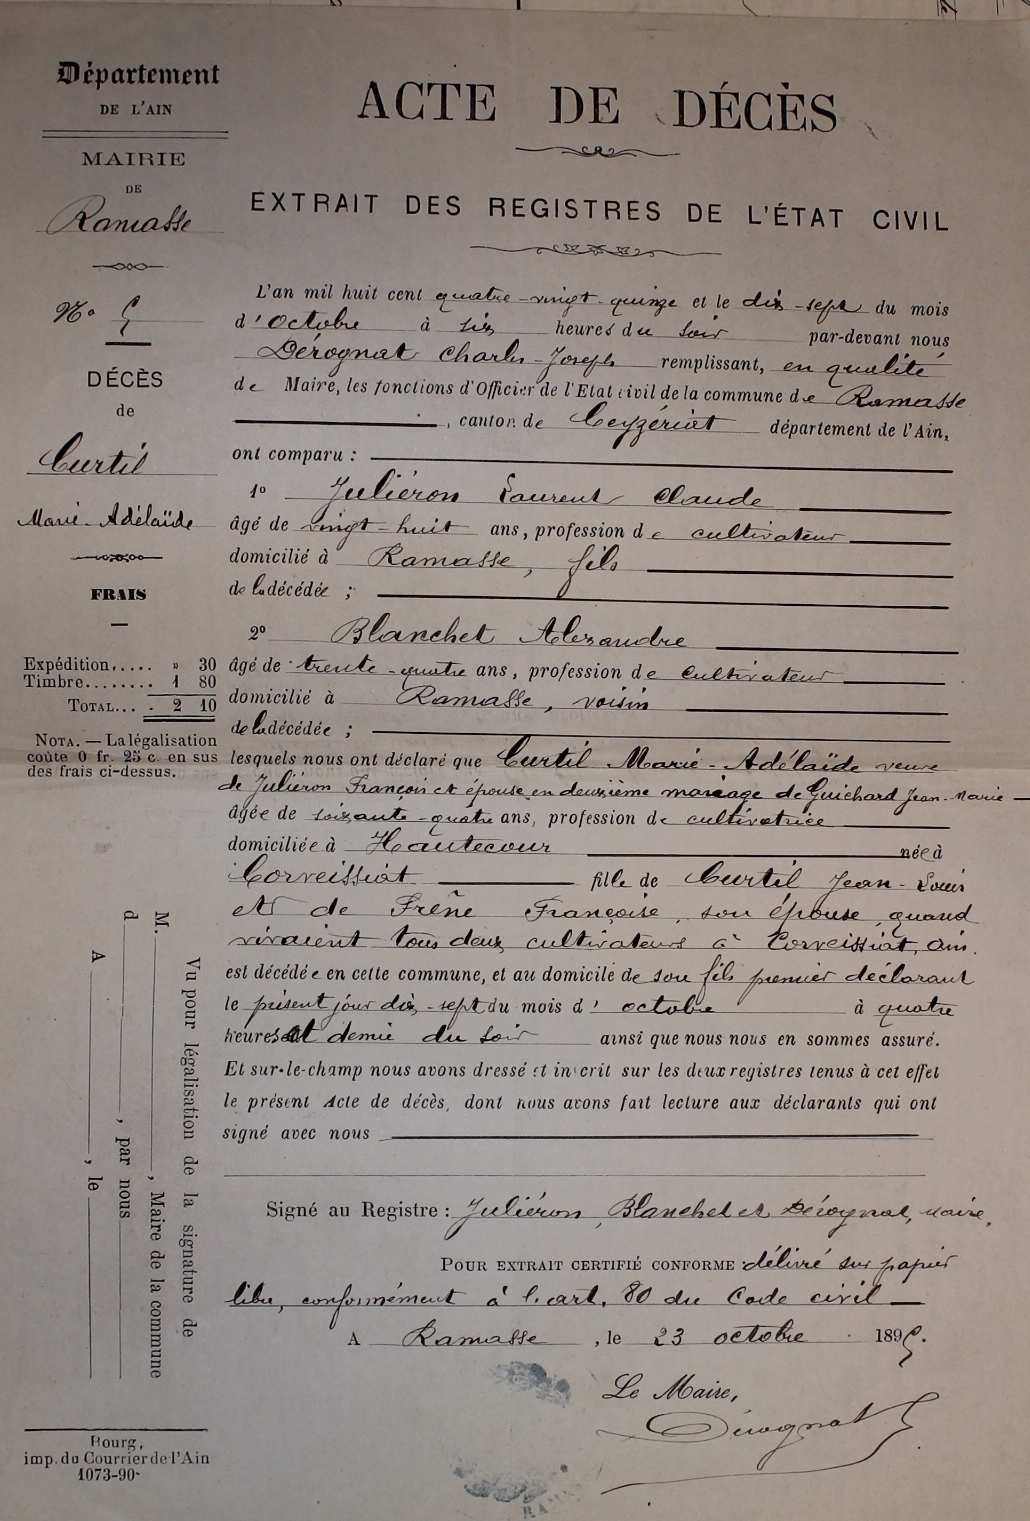 Département
DE L'AIN
MAIRIE
DE
Ramasse
No 5
DÉCÈS
de
Curtil
Marie-Adélaïde
FRAIS
Expédition..... » 30
Timbre........ 1 80
TOTAL... 2 10
NOTA. — La légalisation
coûte 0 fr. 25 c. en sus
des frais ci-dessus.
ACTE DE DÉCÈS
EXTRAIT DES REGISTRES DE L'ÉTAT CIVIL
L'an mil huit cent quatre-vingt-quinze et le dix-sept du mois
d'Octobre à six heures du soir par-devant nous
Dérognat Charles-Joseph remplissant, en qualité
de Maire, les fonctions d'Officier de l'Etat civil de la commune de Ramasse
, canton de Ceyzériat département de l'Ain,
ont comparu :
1o Juliéron Laurent Claude
âgé de vingt-huit ans, profession de cultivateur
domicilié à Ramasse, fils
de la décédée ;
2o Blanchet Alexandre
âgé de trente-quatre ans, profession de cultivateur
domicilié à Ramasse, voisin
de la décédée ;
lesquels nous ont déclaré que Curtil Marie-Adélaïde veuve
de Juliéron François et épouse en deuxième mariage de Guichard Jean-Marie —
âgée de soixante-quatre ans, profession de cultivatrice
domiciliée à Hautecour née à
Corveissiat fille de Curtil Jean-Louis
et de Frêne Françoise, son épouse, quand
vivaient tous deux cultivateurs à Corveissiat, Ain.
est décédée en cette commune, et au domicile de son fils premier déclarant
le présent jour dix-sept du mois d'octobre à quatre
heures et demie du soir ainsi que nous nous en sommes assuré.
Et sur-le-champ nous avons dressé et inscrit sur les deux registres tenus à cet effet
le présent Acte de décès, dont nous avons fait lecture aux déclarants qui ont
signé avec nous
Signé au Registre : Juliéron, Blanchet et Dérognat, maire.
POUR EXTRAIT CERTIFIÉ CONFORME délivré sur papier
libre, conformément à l'art. 80 du Code civil —
A Ramasse, le 23 octobre 1895.
Le Maire,
Dérognat
Vu pour légalisation de la signature de
M. , Maire de la commune
d , par nous
A , le
Bourg,
imp. du Courrier de l'Ain
1073-90